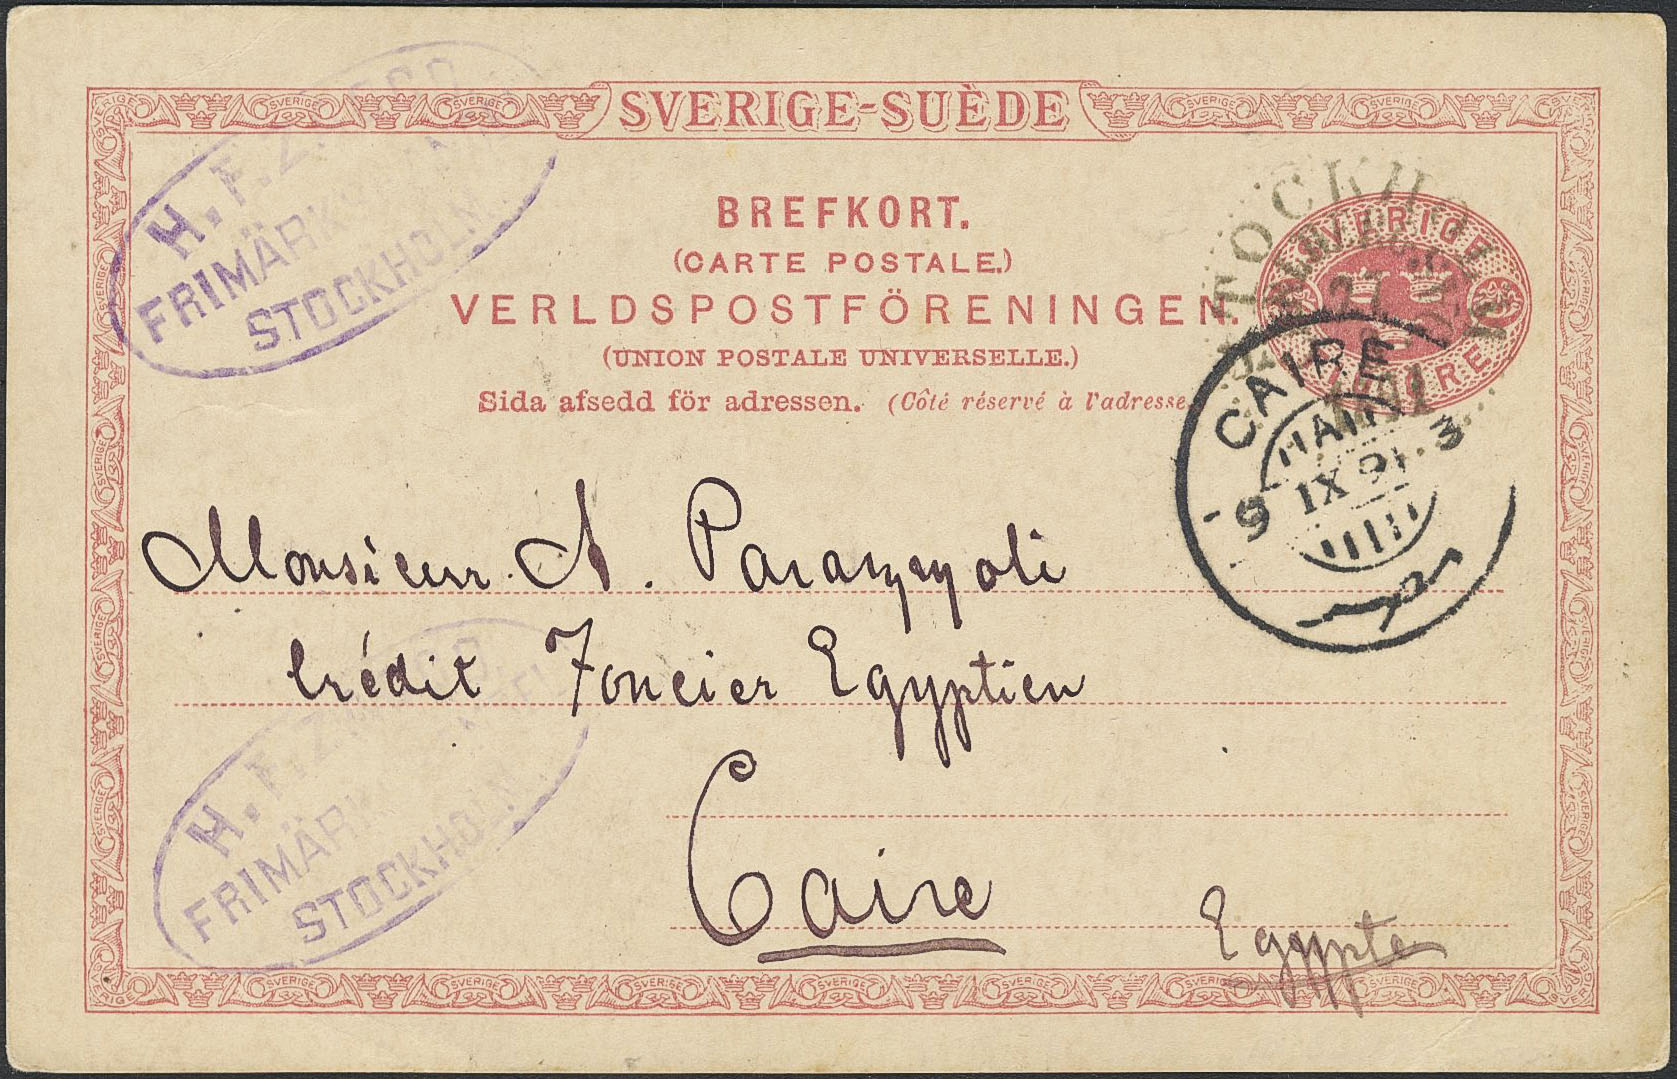 SVERIGE-SUÈDE
BREFKORT.
(CARTE POSTALE.)
VERLDSPOSTFÖRENINGEN.
(UNION POSTALE UNIVERSELLE.)
Sida afsedd för adressen. (Côté réservé à l'adresse
SVERIGE
STOCKHOLM
27
1891
CAIRE
9 IX 91 3
H. F.
FRIMÄRK
STOCKHOLM
Monsieur A.
Crédit Foncier Egyptien
Caire
Egypte
H. F.
FRIMÄRK
STOCKHOLM